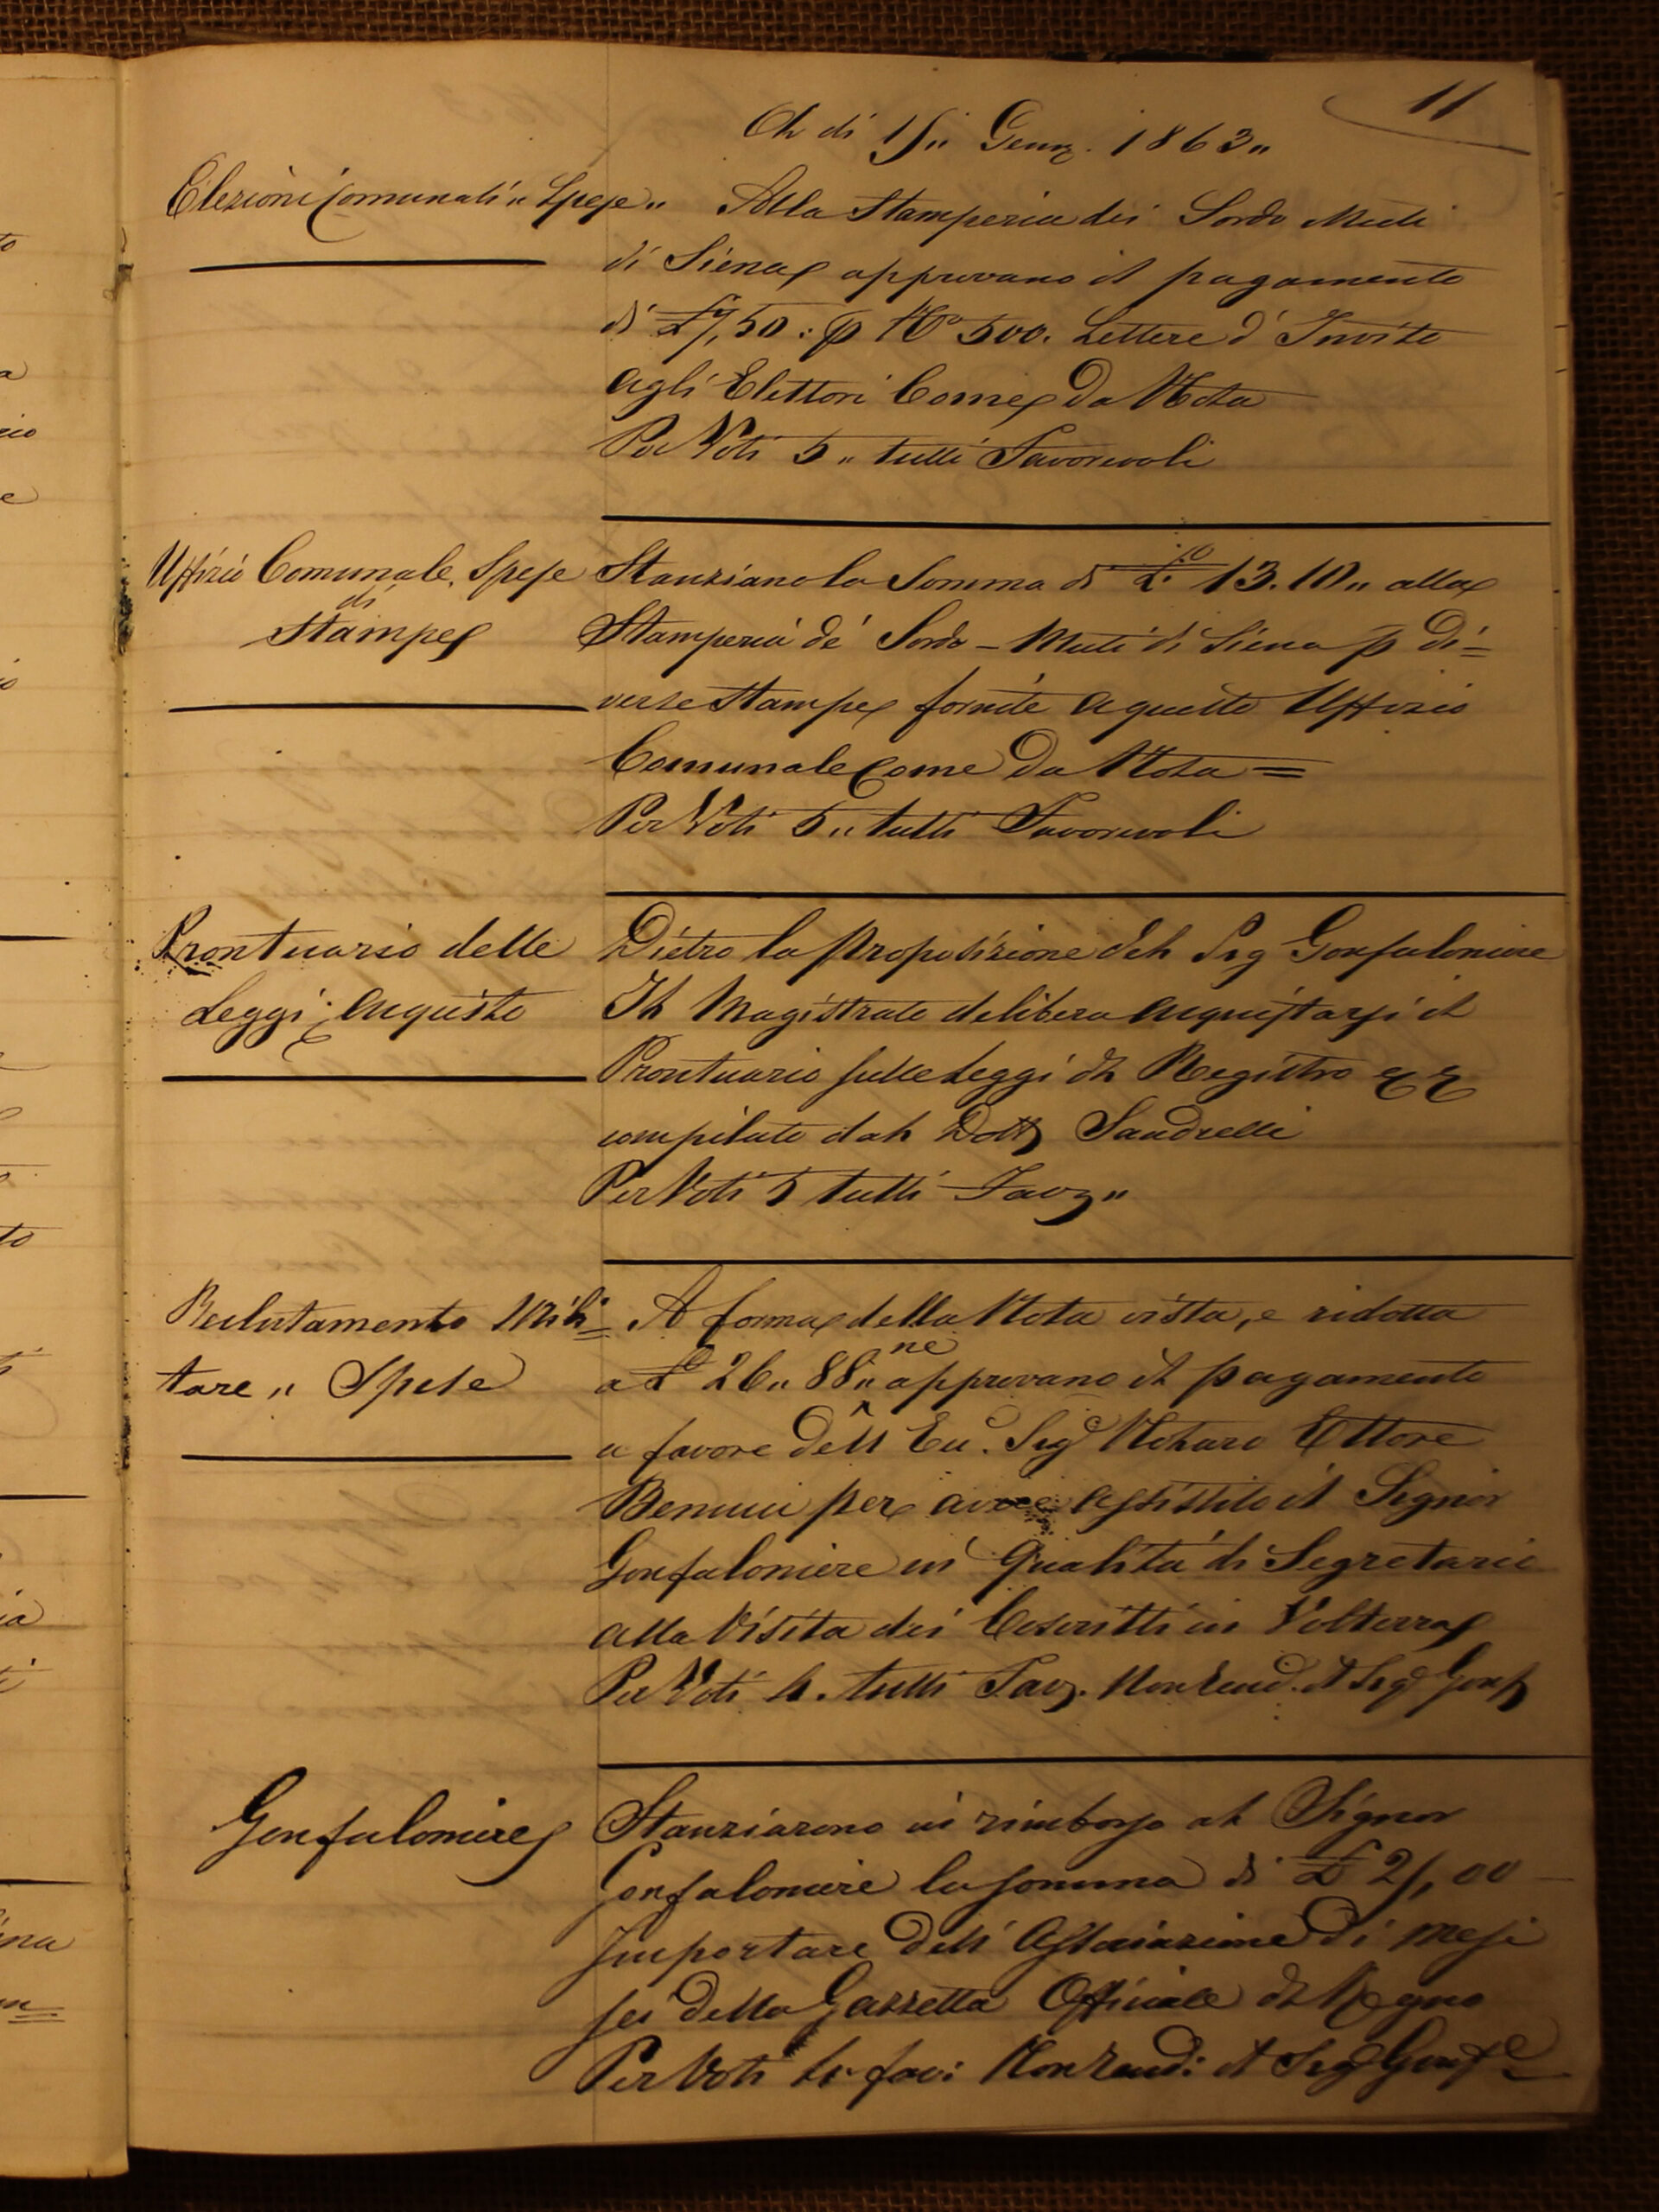 11
A dì 15,, Genn. 1863,,
Elezioni Comunali,, Spese,,
Alla Stamperia dei Sordo Muti
di Siena approvano il pagamento
di £ 7,50: p N° 500. Lettere d'Invito
agli Elettori Come da Nota
Per Voti 5,, tutti Favorevoli
Uffizio Comunale, Spese
di
Stampe
Stanziano la Somma di £. 13.10,, alla
Stamperia dé Sordo-Muti di Siena p di=
verse Stampe fornite a questo Uffizio
Comunale Come da Nota =
Per Voti 5,, tutti Favorevoli
Prontuario delle
Leggi; Acquisto
Dietro la Proposizione del Sig Gonfaloniere
Il Magistrato delibera acquistarsi il
Prontuario sulle Leggi di Registro
compilato dal Dott Sandrelli
Per Voti 5 tutti Fav,,
Reclutamento Mili=
tare,, Spese
A forma della Nota vista, e ridotta
a £ 26,, 88,, ne approvano il pagamento
a favore dell' Ecc. Sig Notaro Ettore
Benucci per avere assistito il Signor
Gonfaloniere in qualità di Segretario
alla Visita dei Coscritti in Volterra
Per Voti 4. tutti Fav. Non rend. il Sig Gonf
Gonfaloniere
Stanziarono in rimborso al Signor
Gonfaloniere la somma di £ 21,00
Importare dell' Associazione di mesi
sei della Gazzetta Officiale di Regno
Per Voti 4. favi Non rendi: il Sig Gonfe